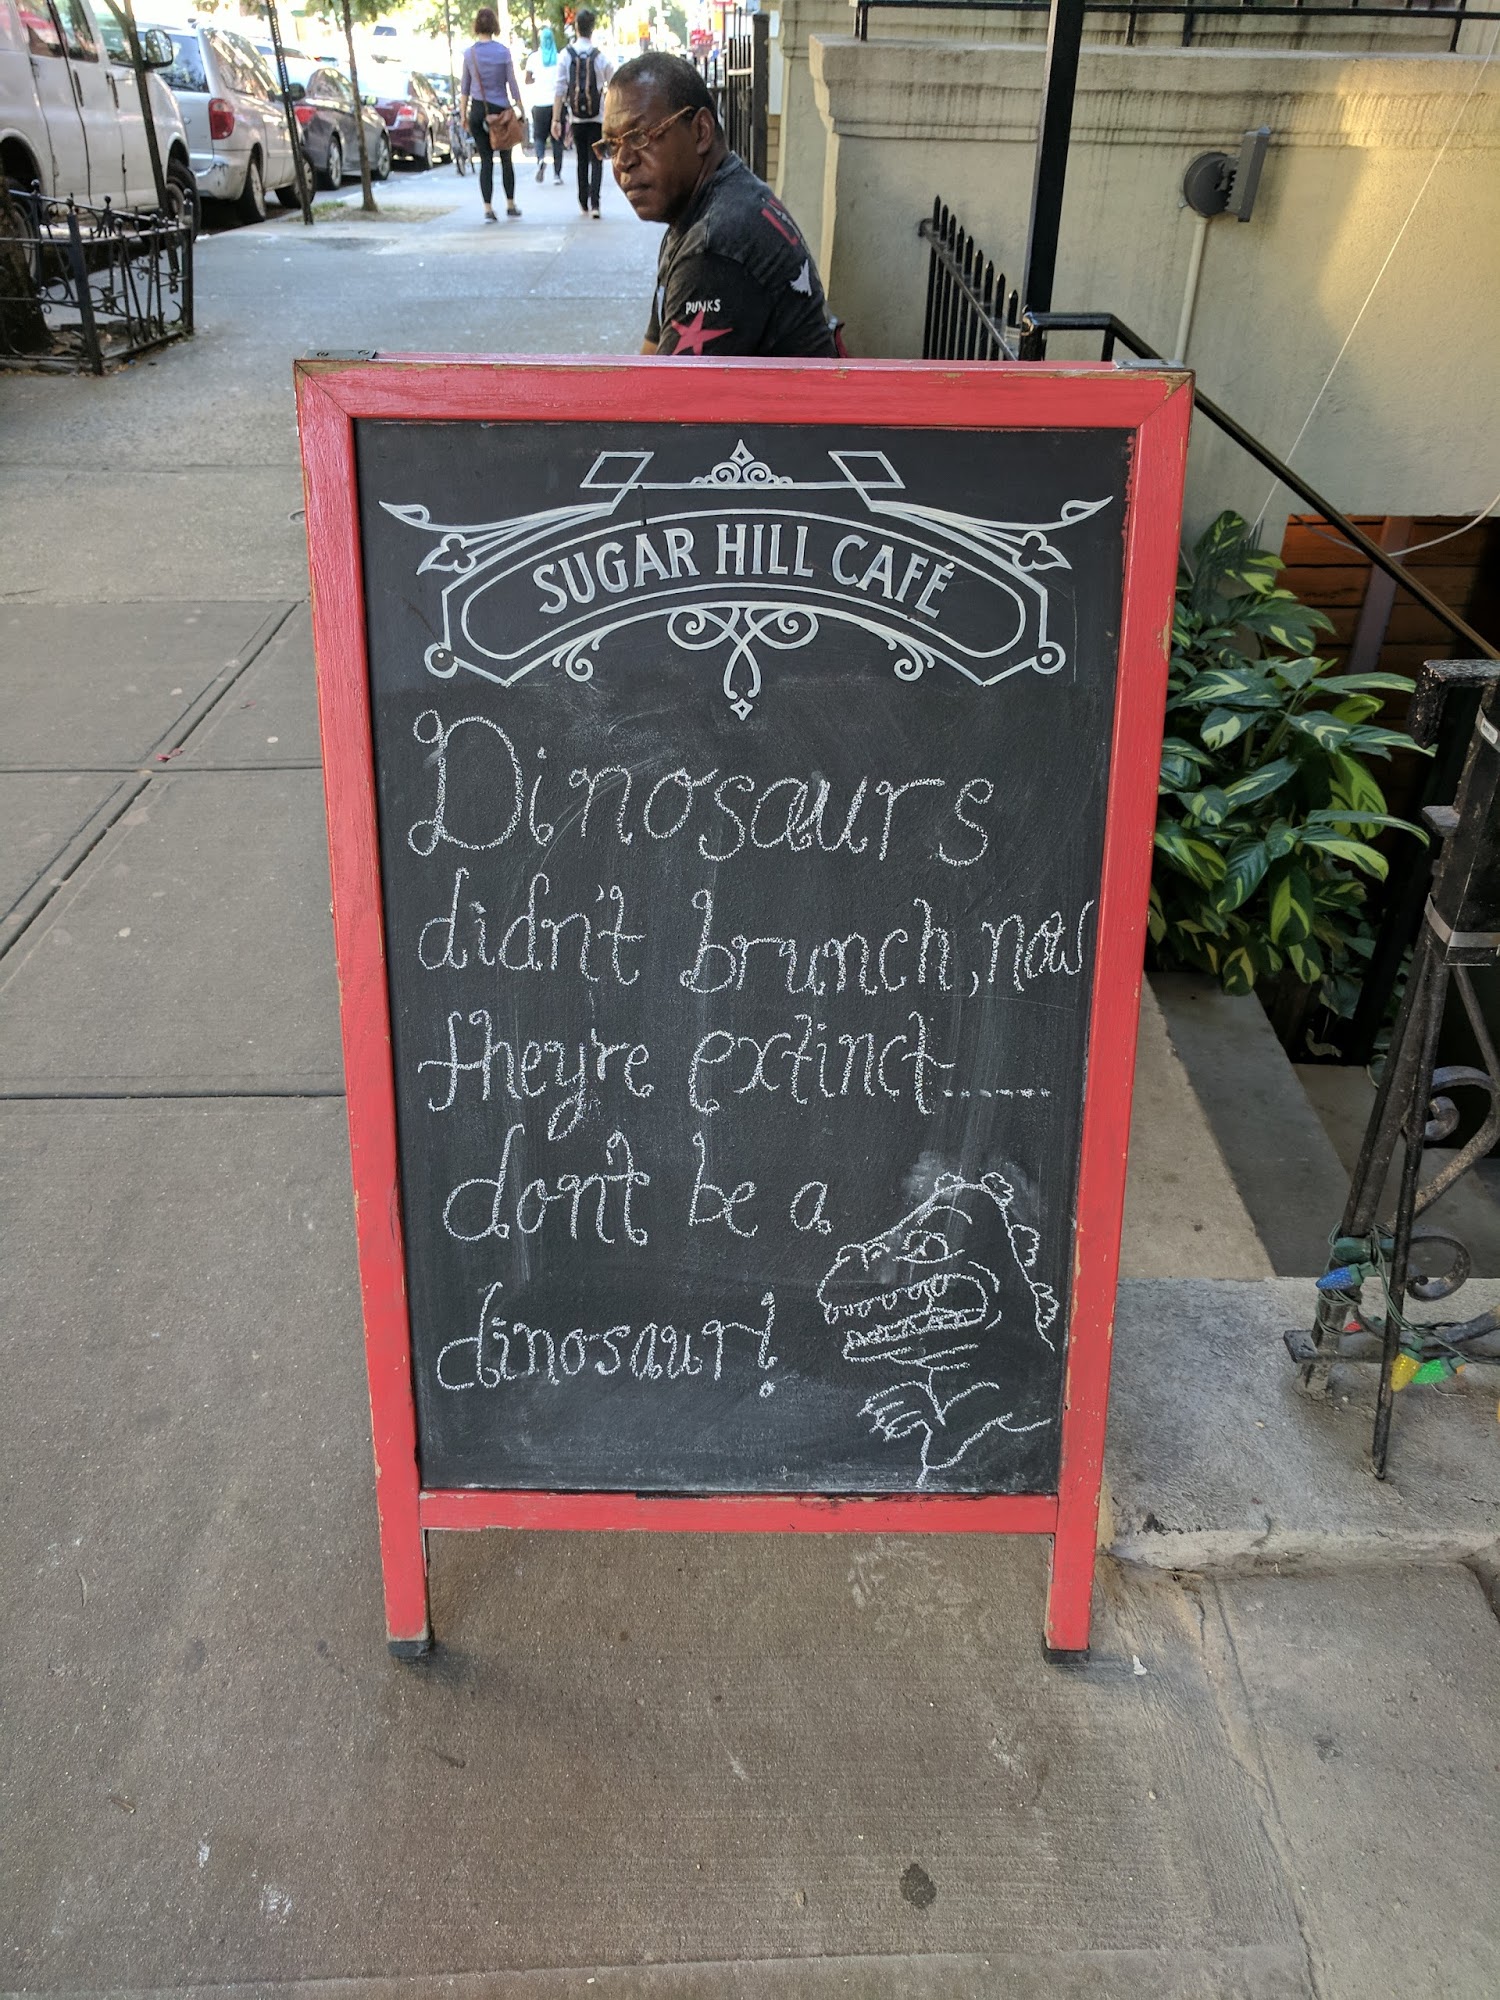 PUNKS
SUGAR HILL CAFÉ
Dinosaurs
didn't brunch, now
they're extinct.....
don't be a
dinosaur!